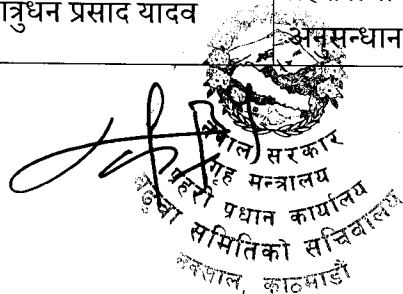 त्रुधन प्रसाद यादव
अनुसन्धान
नेपाल सरकार
गृह मन्त्रालय
प्रहरी प्रधान कार्यालय
बढुवा समितिको सचिवालय
नक्साल, काठमाडौं